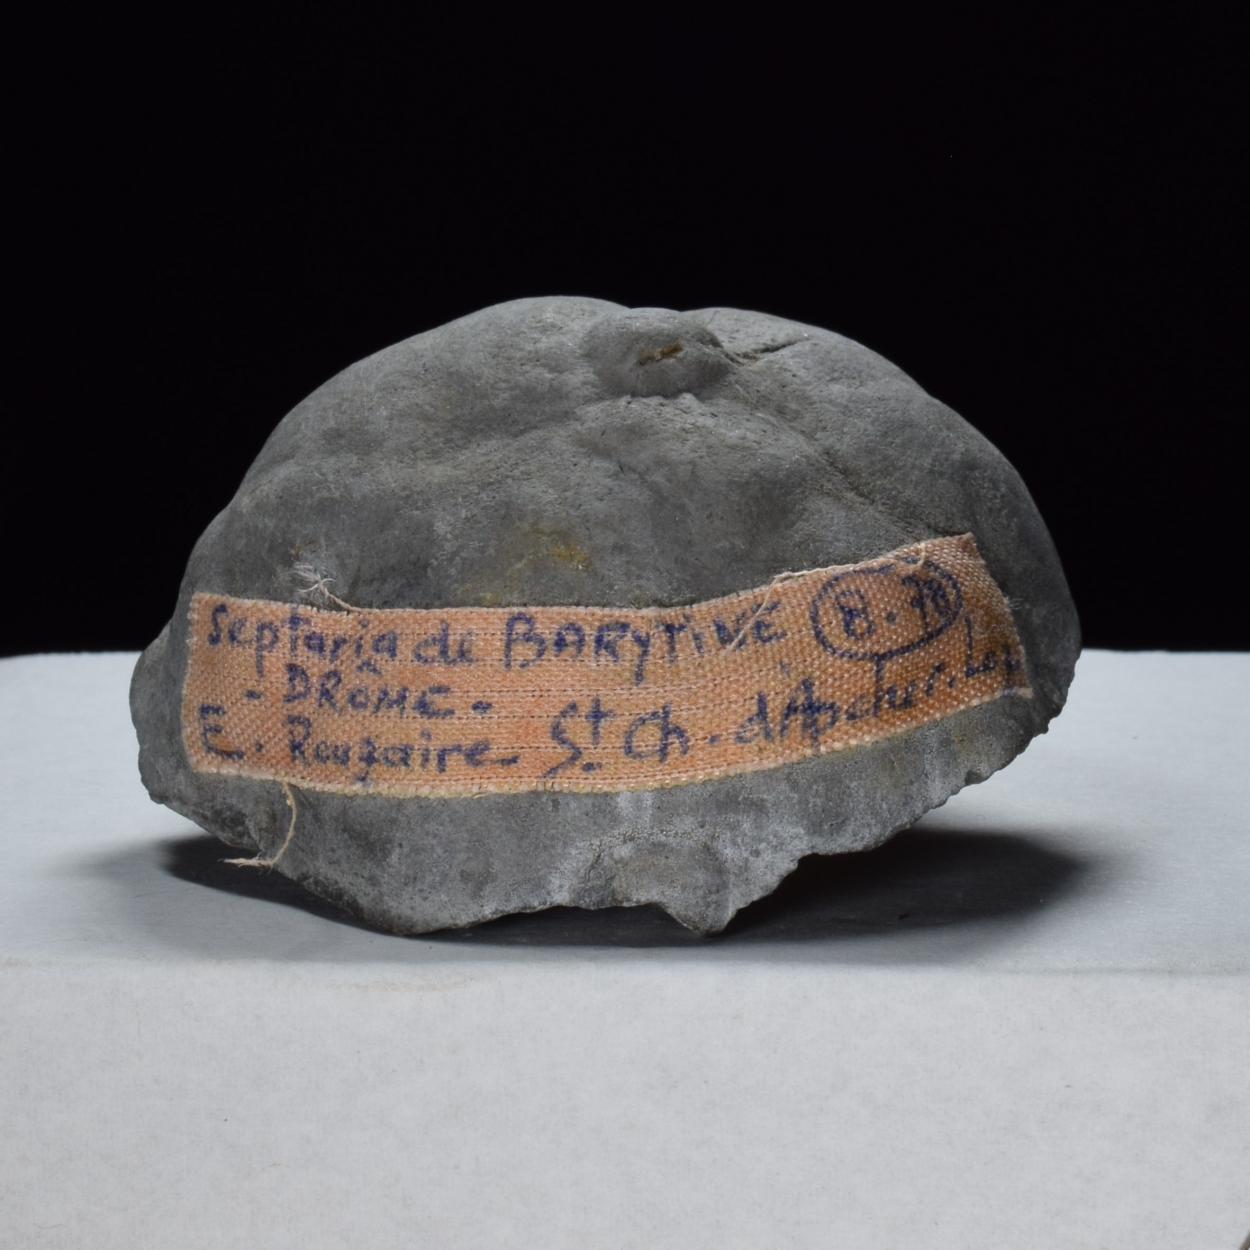 Septaria de BARYTINE 8.78
- DRÔME -
E. Rouzaire - St Ch. d'Apcher.